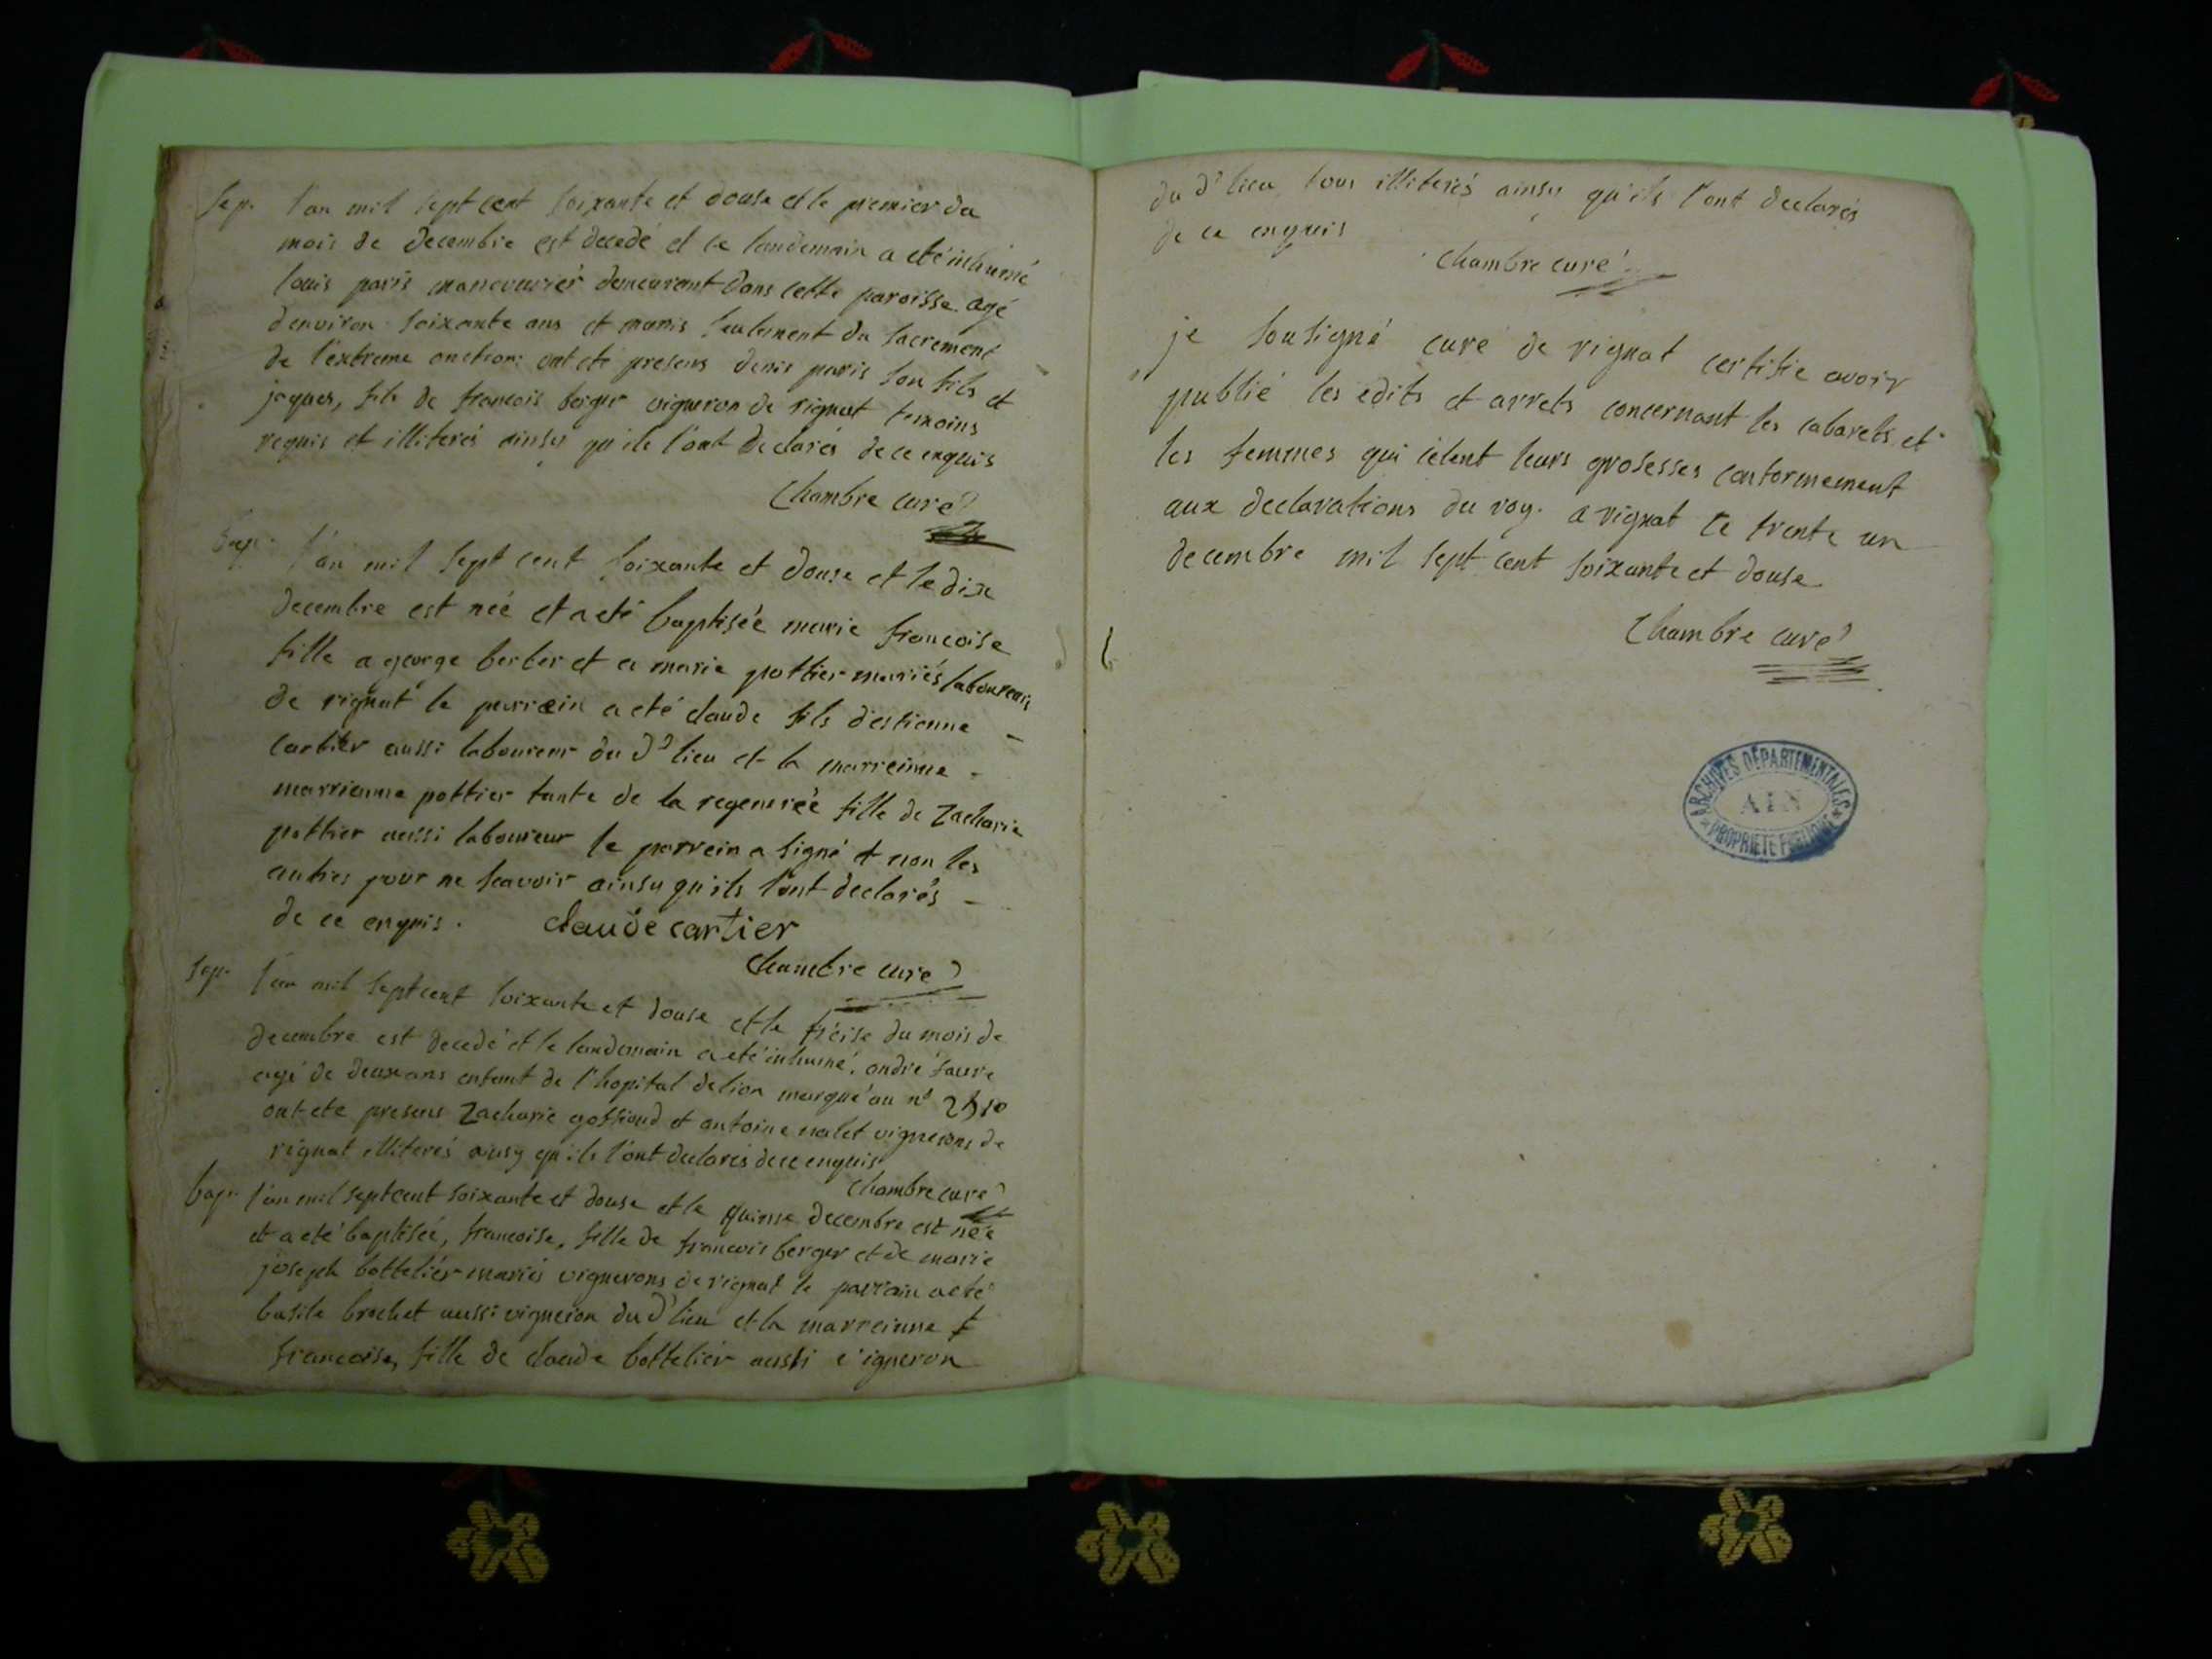 Sep. l'an mil sept cent soixante et douse et le premier du
mois de decembre est decedé et le landemain a eté inhumé
louis paris maneuvrier demeurant dans cette paroisse agé
d'environ soixante ans et munis seulement du sacrement
de l'extreme onction: ont ete presens denis paris son fils et
jaques, fils de francois berger vigneron de rignat temoins
requis et illiterés ainsy qu'ils l'ont declarés de ce enquis
Chambre curé
Bap. l'an mil sept cent soixante et douse et le dix
decembre est neé et a eté baptisée marie francoise
fille a george berlier et a marie pottier mariés laboureurs
de rignat le parrein a eté claude fils d'estienne
cartier aussi laboureur du dt lieu et la marreinne
marrienne pottier tante de la regenerée fille de Zacharie
pottier aussi laboureur le parrein a signé et non les
autres pour ne scavoir ainsy qu'ils l'ont declarés
de ce enquis. claude cartier
Chambre curé
Sep. l'an mil sept cent soixante et douse et le treise du mois de
decembre est decedé et le landemain a eté inhumé, andré faure
agé de deux ans enfant de l'hopital de lion marqué au n°
ont ete presens Zacharie gossiond et antoine nalet vignerons de
rignat illiterés ainsy qu'ils l'ont declarés de ce enquis
Chambre curé
bap. l'an mil sept cent soixante et douse et le quinse decembre est née
et a eté baptiseé, francoise, fille de francois berger et de marie
joseph battelier mariés vignerons de rignat le parrain a eté
basile brochet aussi vigneron du dt lieu et la marreinne
francoise, fille de claude battelier aussi vigneron
du dt lieu tous illiterés ainsy qu'ils l'ont declarés
de ce enquis
Chambre curé
je sousigné curé de rignat certifie avoir
publié les edits et arrets concernant les cabarets et
les femmes qui cèlent leurs grosesses conformement
aux declarations du roy. a rignat le trente un
decembre mil sept cent soixante et douse
Chambre curé
ARCHIVES DÉPARTEMENTALES
AIN
PROPRIETE PUBLIQUE